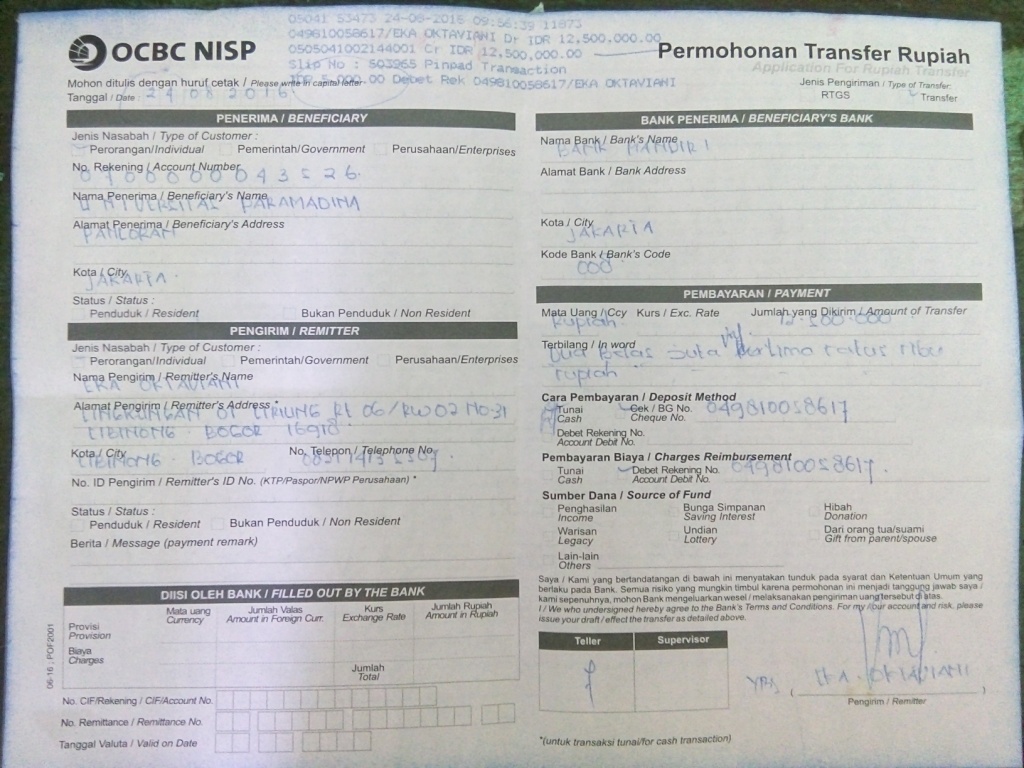 05041 53473 24-08-2016 09:56:39 11873
049810058617/EKA OKTAVIANI Dr IDR 12,500,000.00
0505041002144001 Cr IDR 12,500,000.00
Slip No : 503965 Pinpad Transaction
.00 Debet Rek 049810058617/EKA OKTAVIANI
OCBC NISP
Permohonan Transfer Rupiah
Application For Rupiah Transfer
Mohon ditulis dengan huruf cetak / Please write in capital letter
Tanggal / Date : 24/08 2016
Jenis Pengiriman / Type of Transfer:
RTGS Transfer
PENERIMA / BENEFICIARY
Jenis Nasabah / Type of Customer :
Perorangan/Individual Pemerintah/Government Perusahaan/Enterprises
No. Rekening / Account Number
Nama Penerima / Beneficiary's Name
UNIVERSITAS PARAMADINA
Alamat Penerima / Beneficiary's Address
Kota / City
JAKARTA.
Status / Status :
Penduduk / Resident Bukan Penduduk / Non Resident
PENGIRIM / REMITTER
Jenis Nasabah / Type of Customer :
Perorangan/Individual Pemerintah/Government Perusahaan/Enterprises
Nama Pengirim / Remitter's Name
EKA OKTAVIANI
Alamat Pengirim / Remitter's Address *
LINGKUNGAN 01 CIRIUNG RT 06/RW 02 NO.31
CIBINONG - BOGOR 16918.
Kota / City No. Telepon / Telephone No.
CIBINONG - BOGOR
No. ID Pengirim / Remitter's ID No. (KTP/Paspor/NPWP Perusahaan) *
Status / Status :
Penduduk / Resident Bukan Penduduk / Non Resident
Berita / Message (payment remark)
DIISI OLEH BANK / FILLED OUT BY THE BANK
Mata uang Currency
Jumlah Valas Amount in Foreign Curr.
Kurs Exchange Rate
Jumlah Rupiah Amount in Rupiah
Provisi
Provision
Biaya
Charges
Jumlah
Total
No. CIF/Rekening / CIF/Account No.
No. Remittance / Remittance No.
Tanggal Valuta / Valid on Date
06-16 ; POF2001
BANK PENERIMA / BENEFICIARY'S BANK
Nama Bank / Bank's Name
BANK MANDIRI
Alamat Bank / Bank Address
Kota / City
JAKARTA
Kode Bank / Bank's Code
008
PEMBAYARAN / PAYMENT
Mata Uang / Ccy Kurs / Exc. Rate Jumlah yang Dikirim / Amount of Transfer
Rupiah. 12.500.000
Terbilang / In word
Dua belas juta lima ratus ribu
rupiah
Cara Pembayaran / Deposit Method
Tunai
Cash
Cek / BG No.
Cheque No.
049810058617
Debet Rekening No.
Account Debit No.
Pembayaran Biaya / Charges Reimbursement
Tunai
Cash
Debet Rekening No.
Account Debit No.
049810058617.
Sumber Dana / Source of Fund
Penghasilan
Income
Bunga Simpanan
Saving Interest
Hibah
Donation
Warisan
Legacy
Undian
Lottery
Dari orang tua/suami
Gift from parent/spouse
Lain-lain
Others
Saya / Kami yang bertandatangan di bawah ini menyatakan tunduk pada syarat dan Ketentuan Umum yang
berlaku pada Bank. Semua risiko yang mungkin timbul karena permohonan ini menjadi tanggung jawab saya /
kami sepenuhnya, mohon Bank mengeluarkan wesel / melaksanakan pengiriman uang tersebut di atas.
I / We who undersigned hereby agree to the Bank's Terms and Conditions. For my / our account and risk, please
issue your draft / effect the transfer as detailed above.
Teller Supervisor
EKA OKTAVIANI
Pengirim / Remitter
*(untuk transaksi tunai/for cash transaction)